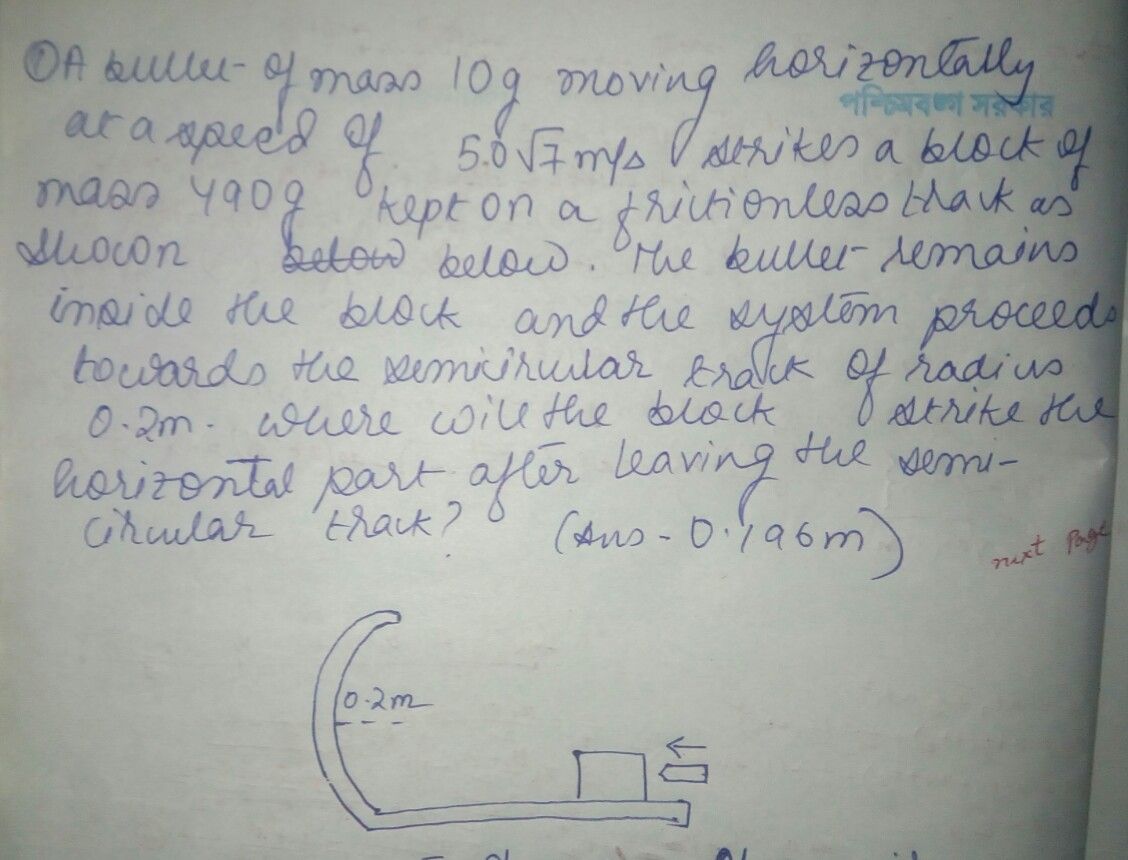 ① A bullet of mass 10g moving horizontally
পশ্চিমবঙ্গ সরকার
at a speed of 50√7 m/s strikes a block of
mass 490g kept on a frictionless track as
shown below below. The bullet remains
inside the block and the system proceeds
towards the semicirular track of radius
0.2m. where will the block strike the
horizontal part after leaving the semi-
circular track? (Ans - 0.196m)
next Page
0.2m